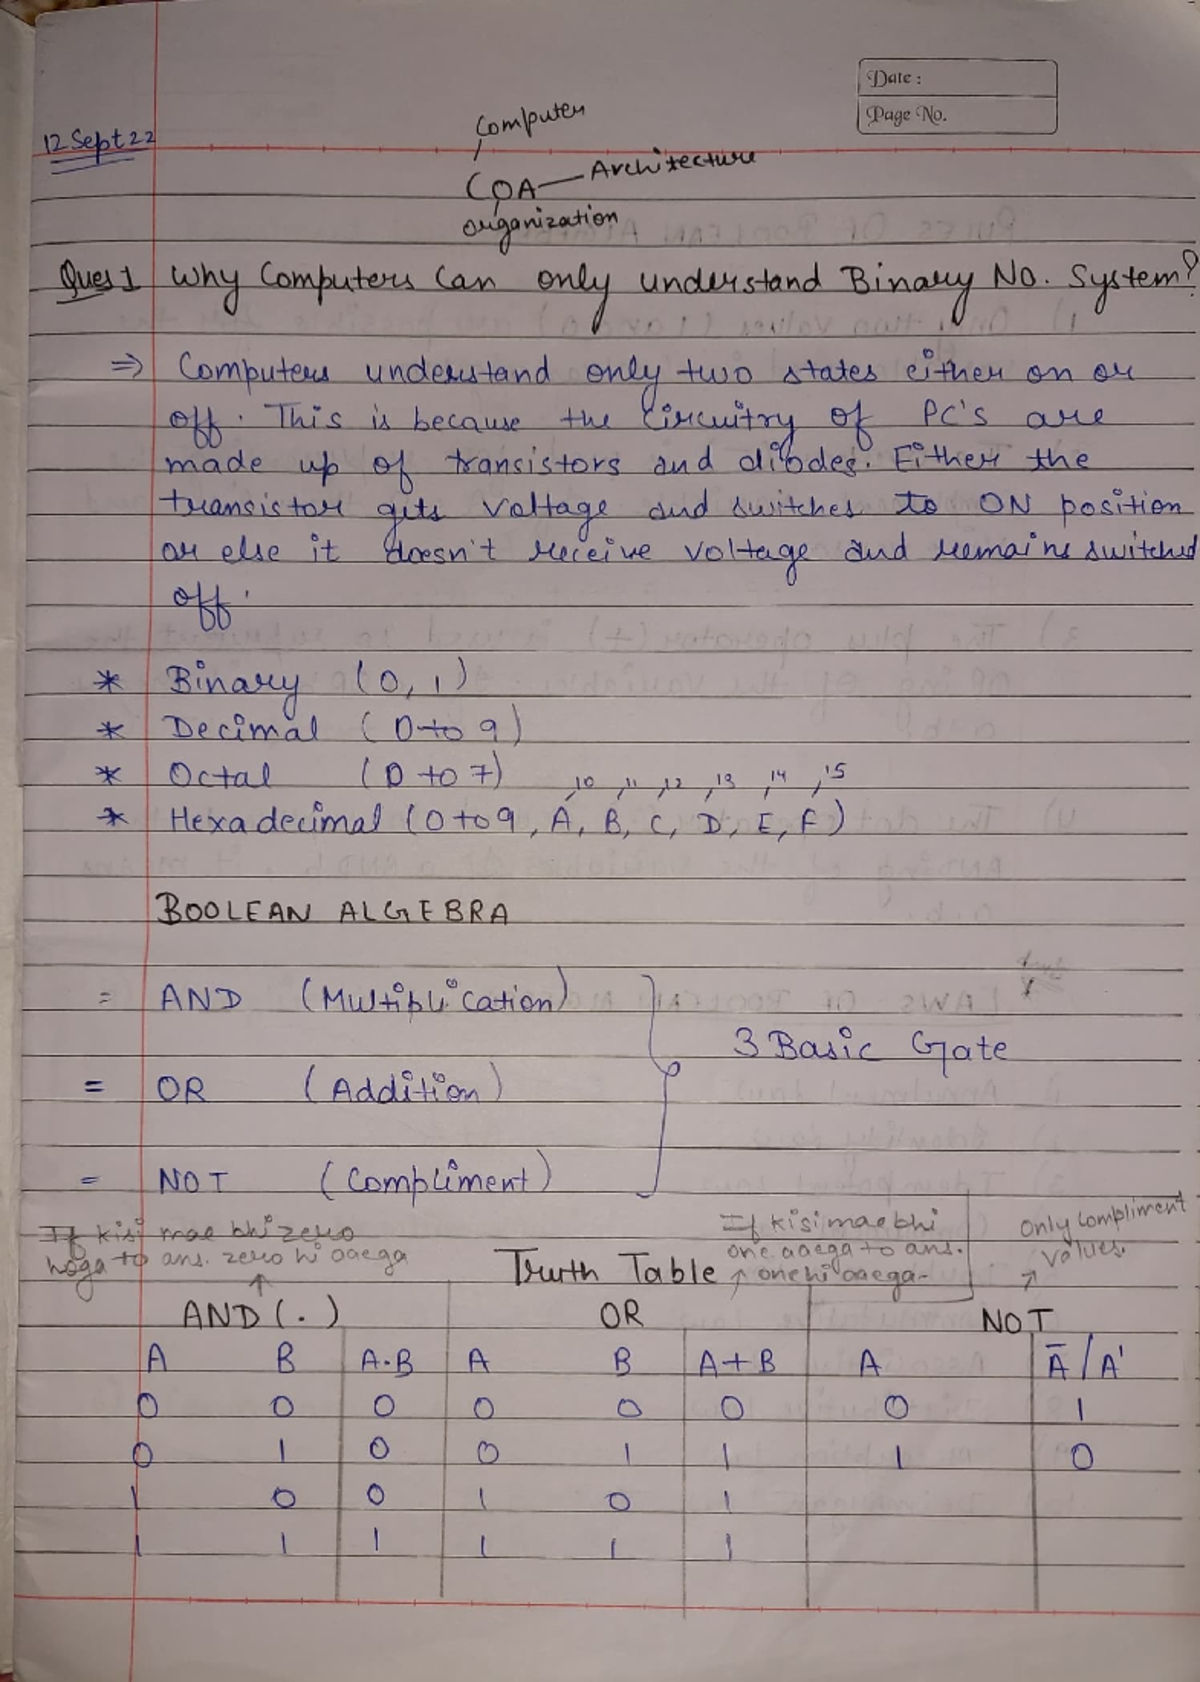 Date :
Page No.
12 Sept 22
Computer
COA — Architecture
organization
Ques 1 Why Computers Can only understand Binary No. System?
⇒ Computers understand only two states either on or
off. This is because the circuitry of PC's are
made up of transistors and diodes. Either the
transistor gets voltage and switches to ON position
or else it doesn't receive voltage and remains switched
off.
* Binary (0, 1)
* Decimal (0 to 9)
* Octal (0 to 7)
,10 ,11 ,12 ,13 ,14 ,15
* Hexadecimal (0 to 9, A, B, C, D, E, F)
BOOLEAN ALGEBRA
= AND (Multiplication)
3 Basic Gate
= OR (Addition)
= NOT (Compliment)
If kisi mae bhi zero
hoga to ans. zero hi aaega
If kisi mae bhi
one aaega to ans.
one hi aaega
only Compliment
values.
Truth Table
AND (.) OR NOT
A B A.B A B A+B A Ā/A'
0 0 0 0 0 0 0 1
0 1 0 0 1 1 1 0
1 0 0 1 0 1
1 1 1 1 1 1